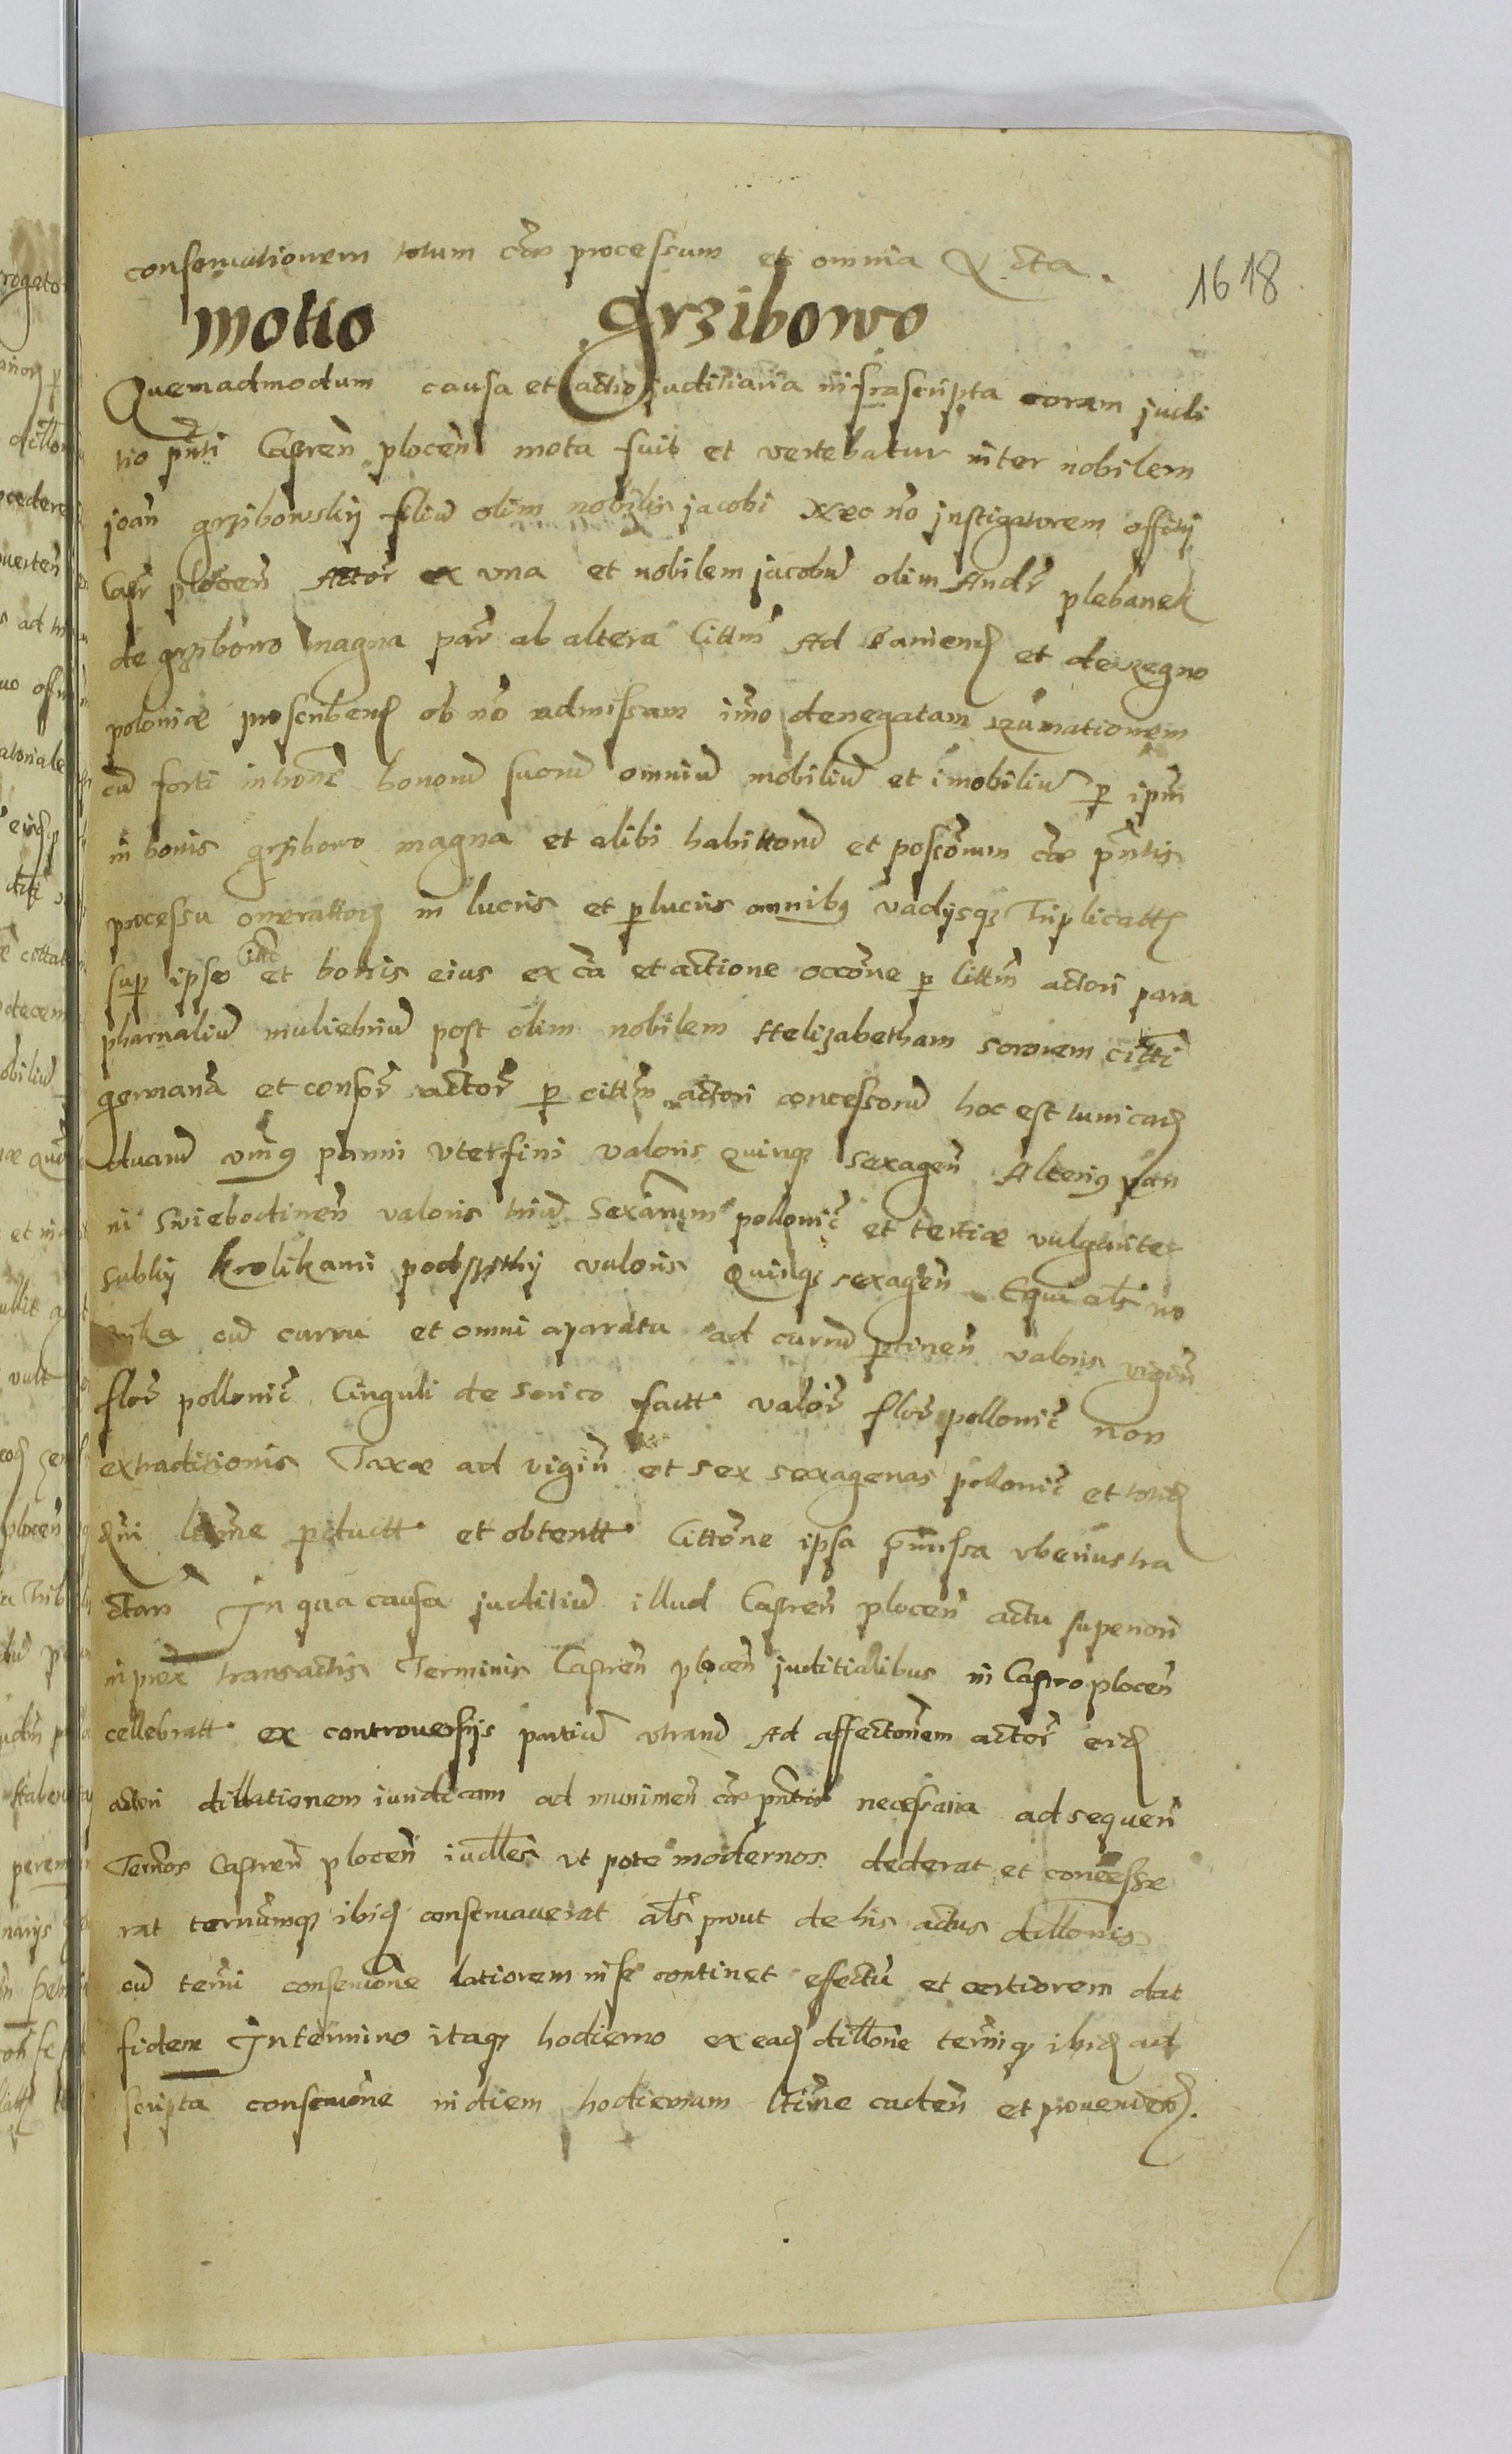 conservationem totum cãe processum et omnia Acta.
1618
Motio Grzibowo
Quemadmodum causa et actio juditiaria infrascripta coram judi
tio pñti Castreñ ploceñ mota fuit et vertebatur inter nobilem
joañ grzibowskij filiũ olim nobilis jacobi nec nõ jnstigatorem offitij
Castr ploceñ Actoř ex una et nobilem jacobũ olim Andř plebanek
de grzibowo magna pař ab altera Cittm̃ Ad Baniend et de regno
poloniæ proscribend ob nõ admissam im̃o denegatam rumationem
cũ forti intrõne bonorũ suorũ omniũ mobiliũ et im̃obiliũ p ipm̃
in bonis grzibowo magna et alibi habittorũ et possõrum cãe pñtis
processu onerattorz in lucris et plucris omnibq vadijsqz Triplicatt
sup ipso citto et bonis eius ex cã et actione occõne p Cittm̃ actori para
pharnaliũ muliebriũ post olim nobilem Helizabetham sororem citti
germanã et consoř actoř p cittm̃ actori concessorũ hoc est tunicarz
duarũ vniq panni vterfini valoris quinqz sexageñ Alteriq pan
ni swiebodineñ valoris triũ sexarum polloniĉ et tertiæ vulgariter
subky krolikami podszythy valoris quinqz sexageñ Equi als wo
nika cũ curru et omni aparatu ad currũ ptineñ valoris viginti
floř polloniĉ Cinguli de serico factt valoř floř polloniĉ non
extraditionis Taxæ ad vigiñ et sex sexagenas polloniĉ et totid
dni ltime pductt et obtentt Cittõne ipsa pmissa vberius tra
ctañ In qua causa juditiũ illud Castreñ ploceñ actu superiori
in pxie transactis Terminis Castreñ ploceñ juditialibus in Castro ploceñ
cellebratt ex controversijs partiũ vtrarũ Ad affectonem actoř eid
actori dillationem iuridicam ad munimeñ cãe pñtis necessaria ad sequeñ
Termos Castreñ ploceñ iudles vt pote modernos dederat et concesse
rat terminumqz ibid conservaverat als prout de his actus dillonis
cũ termi conservone latiorem in se continet effectũ et certiorem dat
fidem In termino itaqz hodierno ex ead dillone termiqz ibid ad
scripta conservone in diem hodiernam ltime cadeñ et proveniend.